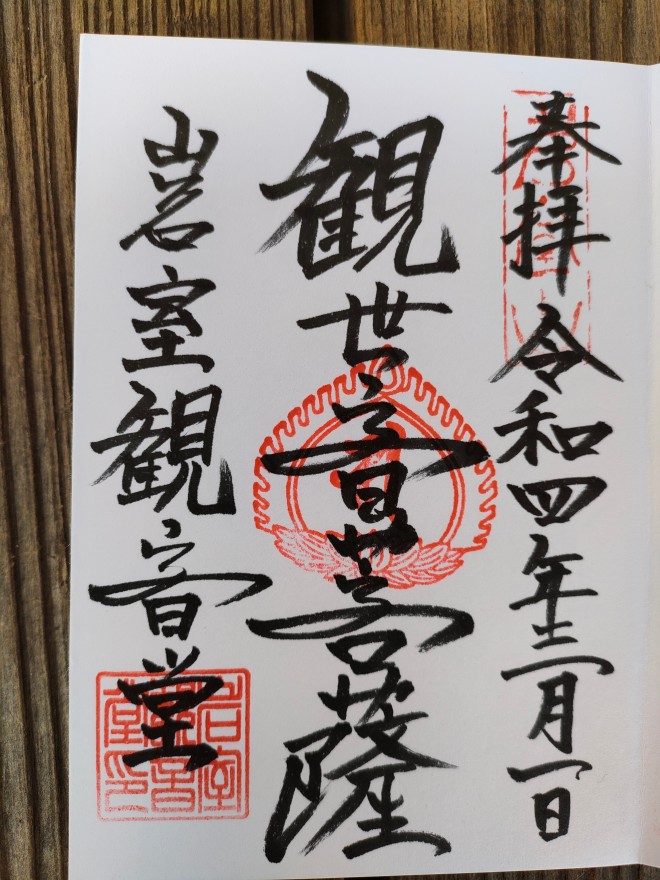 奉拝 令和四年十二月一日
観世音菩薩
岩室観音堂
岩室
観音
堂印